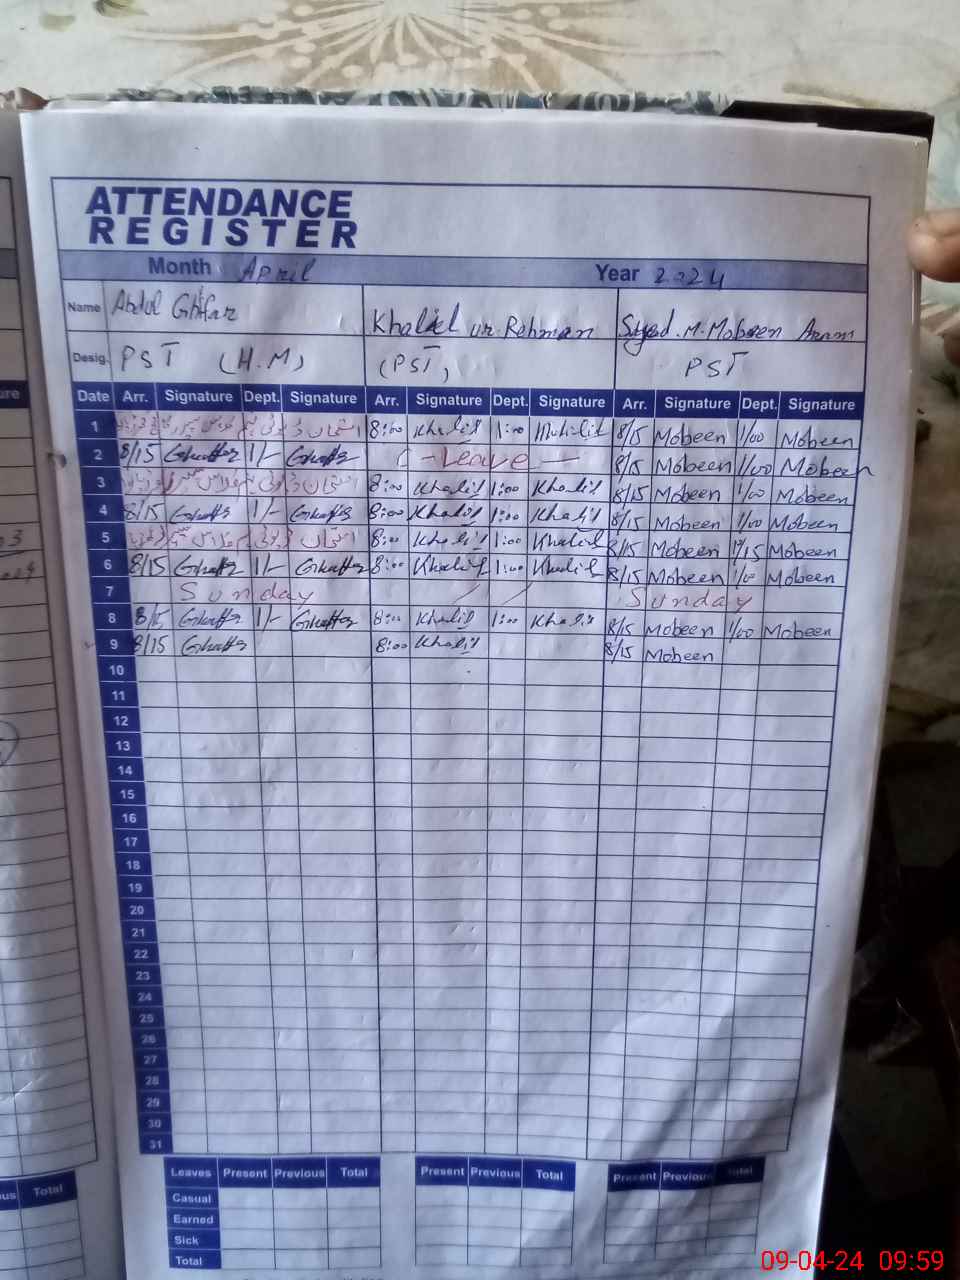 ATTENDANCE
REGISTER
Month April Year 2024
Name Abdul Ghffar Khaliel ur Rehman Syed M. Mobeen
Desig. PST (H.M) (PST) PST
Date Arr. Signature Dept. Signature Arr. Signature Dept. Signature Arr. Signature Dept. Signature
1 امتحان ڈیوٹی 8:00 Khalil 1:00 Khalil 8/15 Mobeen 1/00 Mobeen
2 8/15 Ghaffar 1/- Ghaffar (-Leave- 8/15 Mobeen 1/00 Mobeen
3 امتحان ڈیوٹی 8:00 Khalil 1:00 Khalil 8/15 Mobeen 1/00 Mobeen
4 8/15 Ghaffar 1/- Ghaffar 8:00 Khalil 1:00 Khalil 8/15 Mobeen 1/00 Mobeen
5 امتحان ڈیوٹی 8:00 Khalil 1:00 Khalil 8/15 Mobeen Mobeen
6 8/15 Ghaffar 1/- Ghaffar 8:00 Khalil 1:00 Khalil 8/15 Mobeen 1/00 Mobeen
7 Sunday Sunday
8 8/15 Ghaffar 1/- Ghaffar 8:00 Khalil 1:00 Khalil 8/15 Mobeen 1/00 Mobeen
9 8/15 Ghaffar 8:00 Khalil 8/15 Mobeen
10
11
12
13
14
15
16
17
18
19
20
21
22
23
24
25
26
27
28
29
30
31
Leaves Present Previous Total Present Previous Total Present Previous Total
Casual
Earned
Sick
Total
Total
09-04-24 09:59